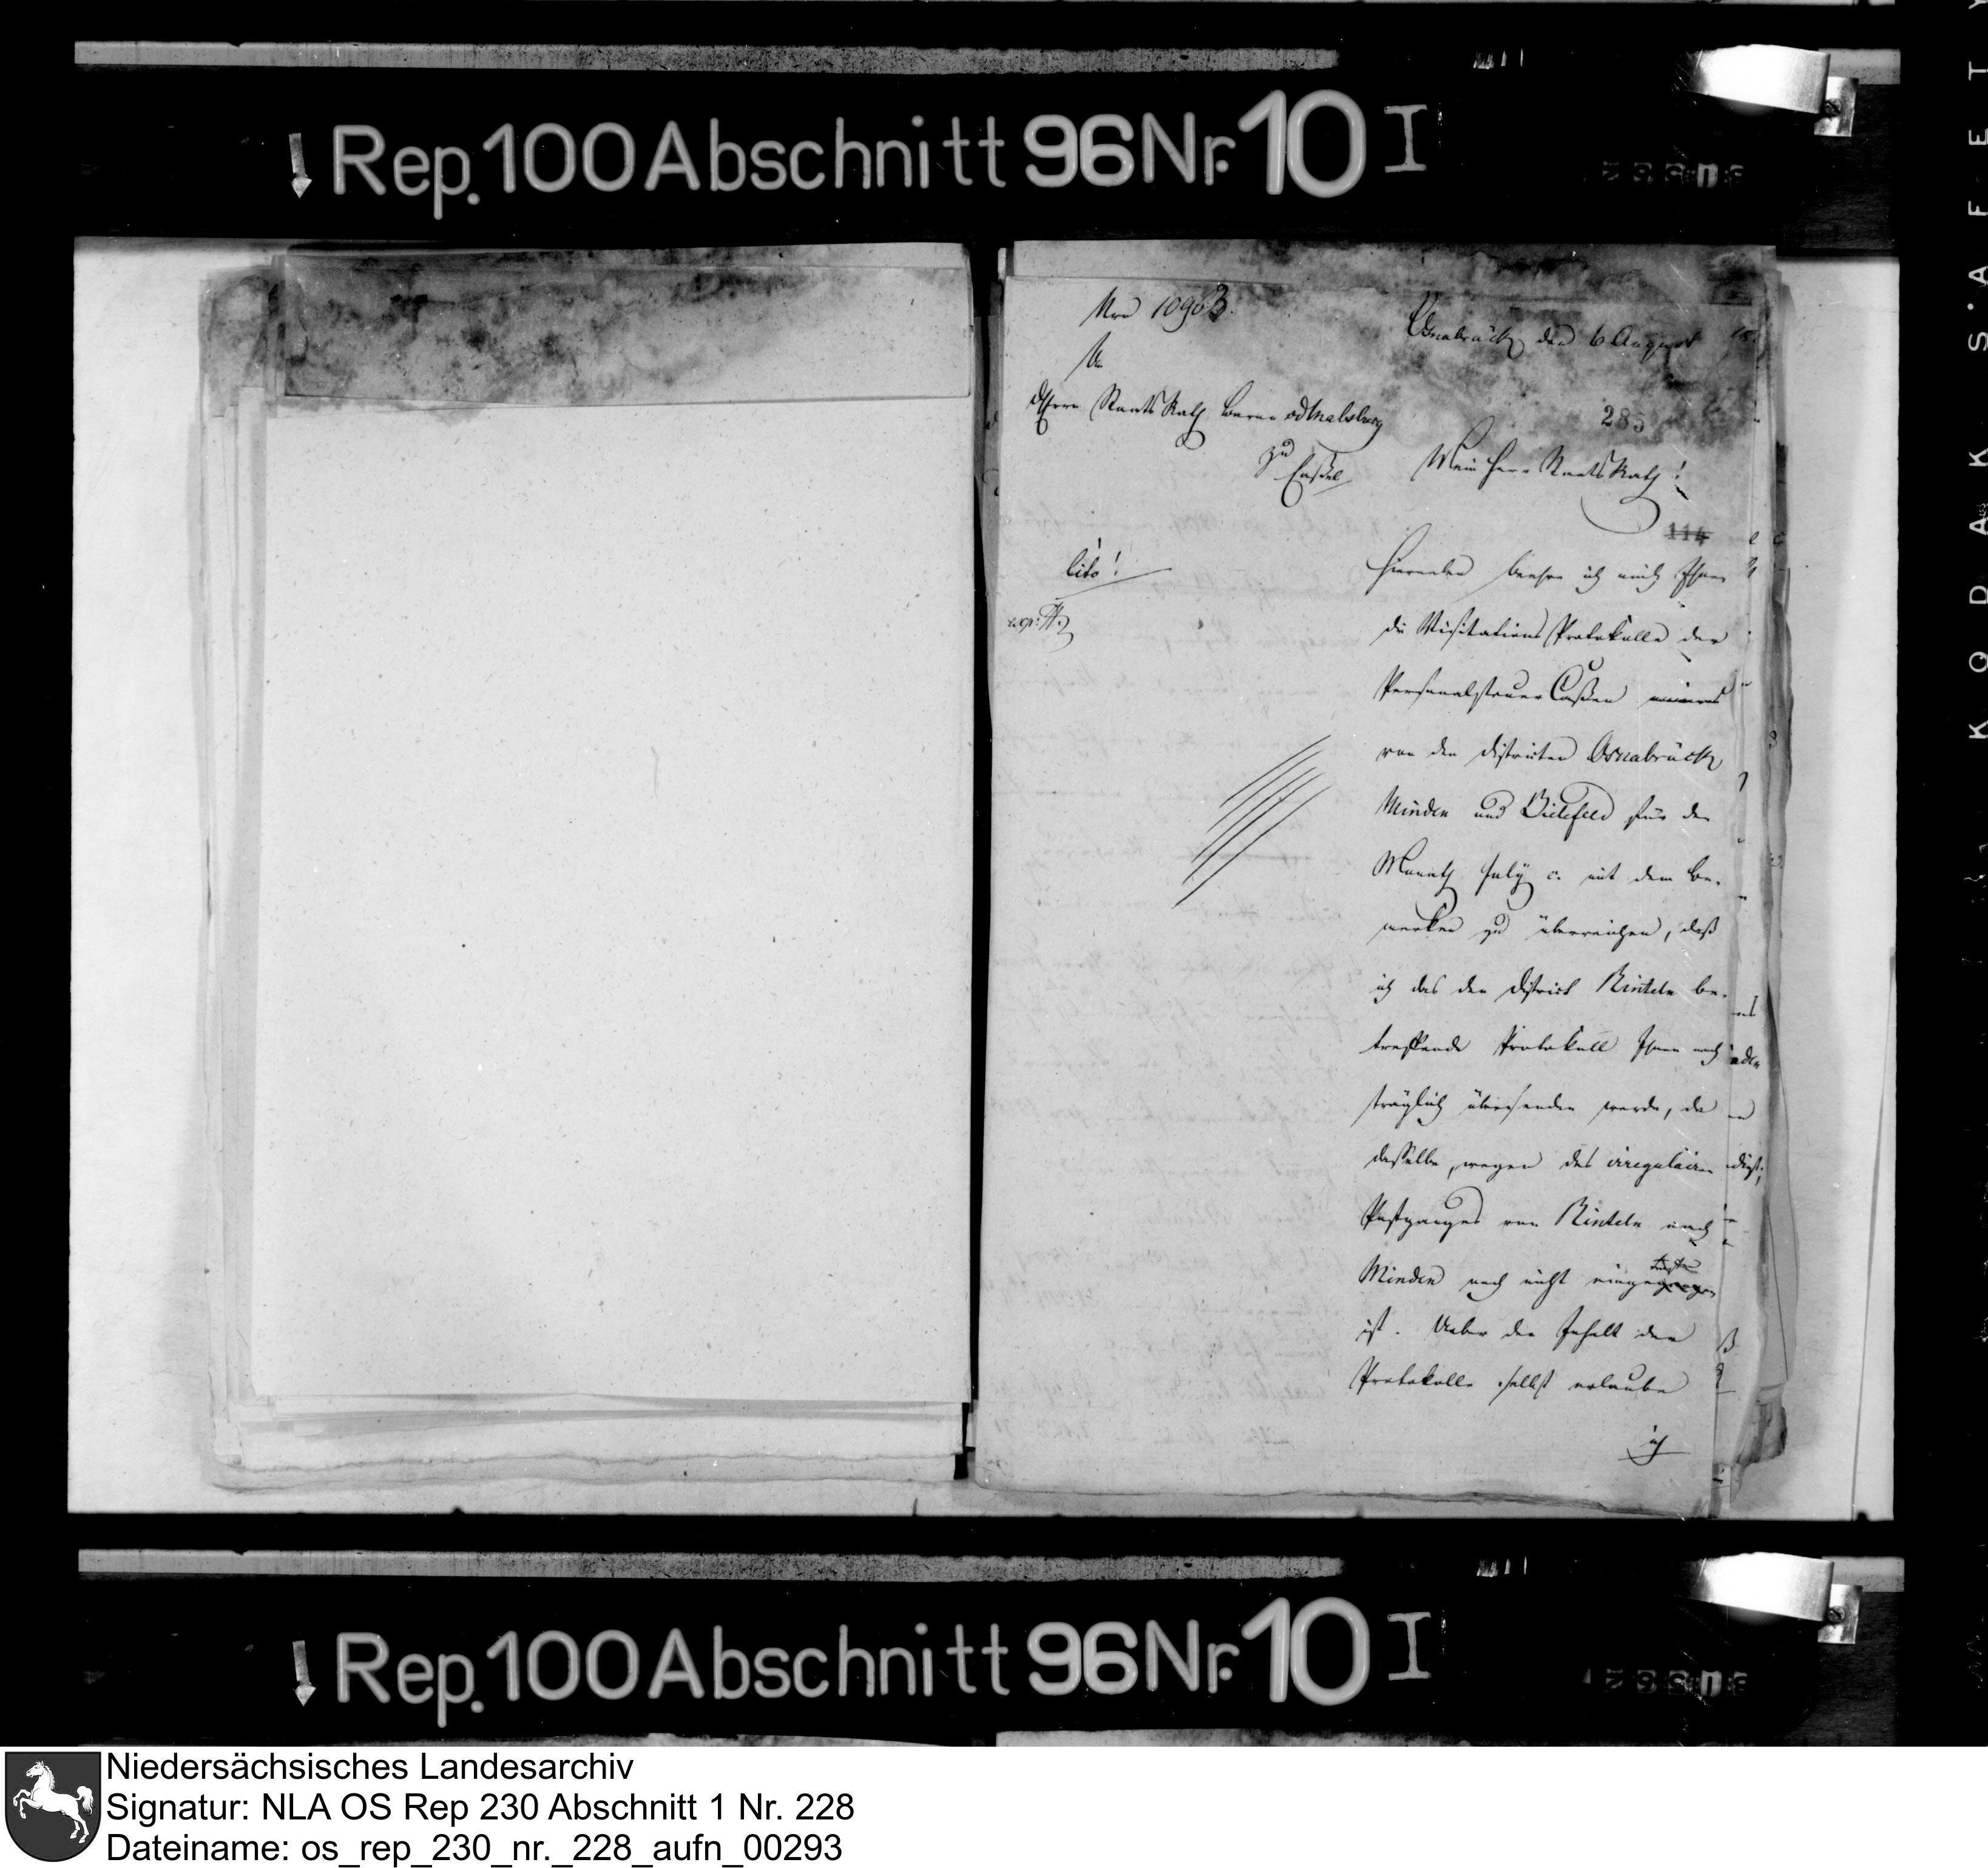 Rep. 100 Abschnitt 96 Nr. 10 I
Nro 10963.
Osnabrück den 6 August
An
d Herrn Staats Rath Baron v d Malsburg
285
zu
Caßel
Mein Herr Staats Rath!
114
Cito!
Hierneben beehre ich mich Ihnen
die Visitations Protokolle der
Personalsteuer Caßen
von den Districten Osnabrück
Minden und Bielefeld für den
Monath July c. mit dem Be-
merken zu überreichen, daß
ich das den District Rinteln be-
treffende Protokoll Ihnen nach
träglich übersenden werde, da
dasselbe, wegen des irregulairen
Postganges von Rinteln nach
Minden noch nicht
ist. Ueber den Inhalt der
Protokolle selbst erlaube
ich
Rep. 100 Abschnitt 96 Nr. 10 I
KODAK S'AFETY
Niedersächsisches Landesarchiv
Signatur: NLA OS Rep 230 Abschnitt 1 Nr. 228
Dateiname: os_rep_230_nr._228_aufn_00293